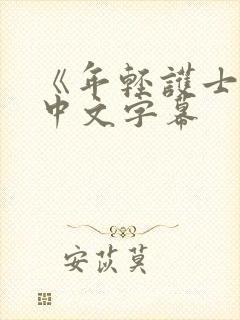 《年輕護士
中文字幕
安苡莫